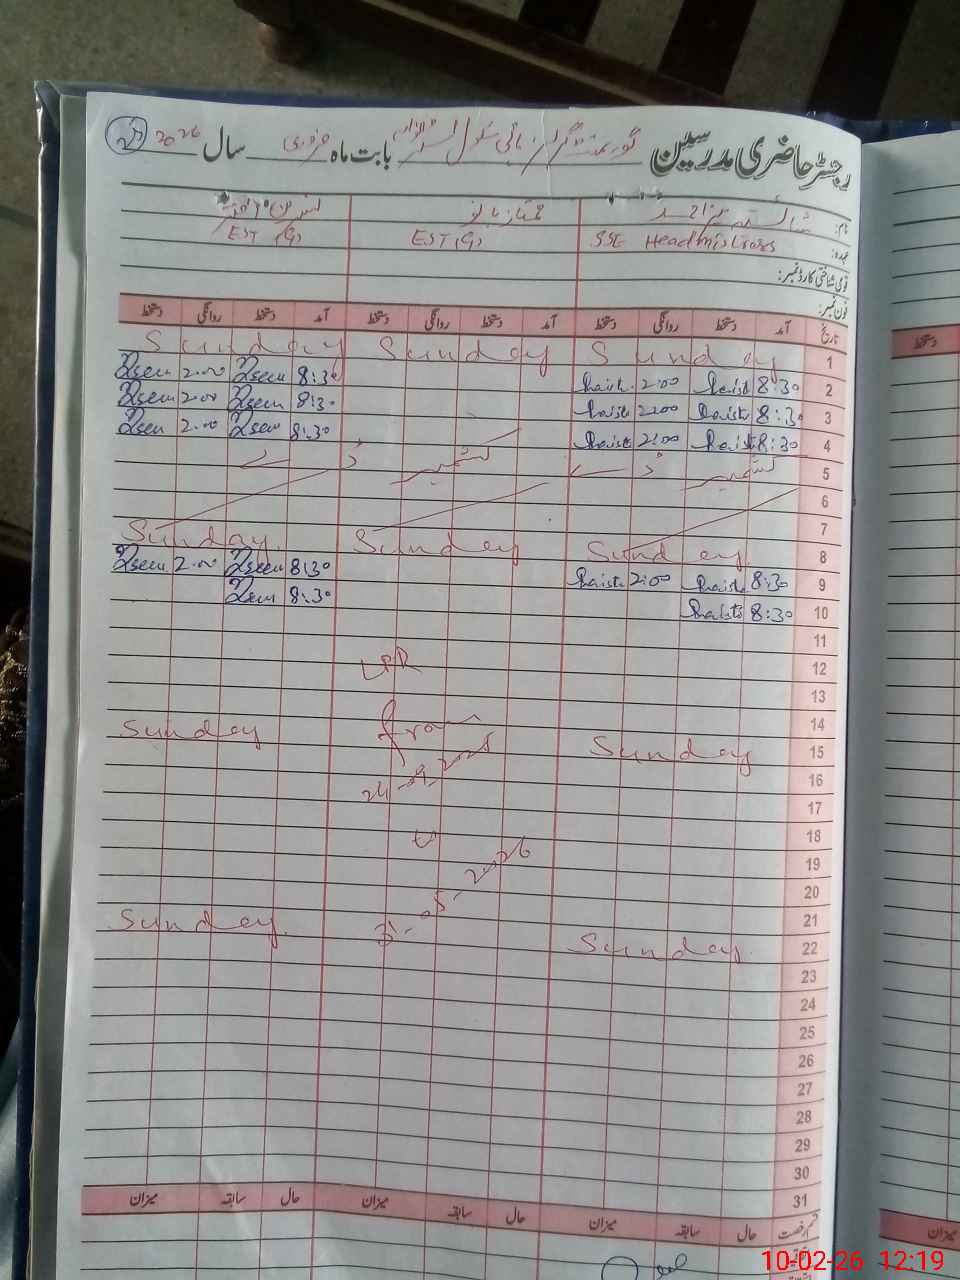 رجسٹر حاضری مدرسین گورنمنٹ گرلز ہائی سکول بابت ماہ فروری سال 2026
نام: ممتاز بانو
عہدہ: SSE Headmistress EST (G) EST (G)
قومی شناختی کارڈ نمبر:
فون نمبر:
تاریخ آمد دستخط روانگی دستخط آمد دستخط روانگی دستخط آمد دستخط روانگی دستخط
1 Sunday Sunday Sunday
2 8:30 2:00 8:30 2:00
3 8:30 2:00 8:30 2:00
4 8:30 2:00 8:30 2:00
5 کشمیر ڈے کشمیر ڈے
6
7
8 Sunday Sunday Sunday
9 8:30 2:00 8:30 2:00
10 8:30 8:30
11
12 LPR
13
14 from
15 Sunday Sunday
16 24-09-2025
17
18 to
19
20 2026
21 31-05-
22 Sunday Sunday
23
24
25
26
27
28
29
30
31
قسم رخصت حال سابقہ میزان حال سابقہ میزان حال سابقہ میزان
دستخط
میزان
10-02-26 12:19